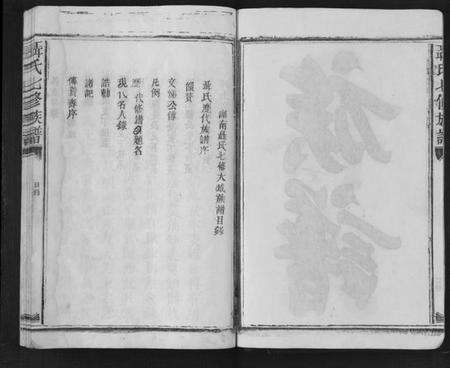 聶氏七修族譜
族譜
湖南聶氏七修大成族譜目錄
聶氏歷代族譜序
像贊
文
凡例
歷代修譜題名
現代名人錄
誥勅
諸記
傳贊壽序
聶氏七修族譜
目錄